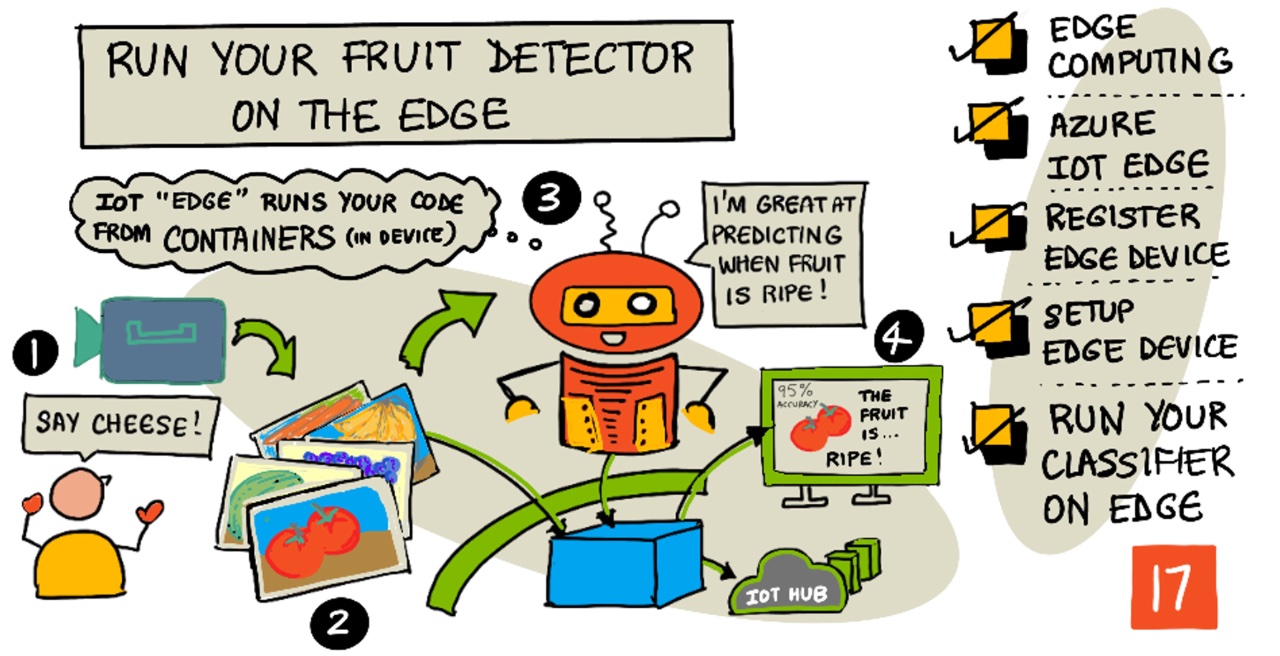 RUN YOUR FRUIT DETECTOR
ON THE EDGE
IOT "EDGE" RUNS YOUR CODE
FROM CONTAINERS (IN DEVICE)
3
I'M GREAT AT
PREDICTING
WHEN FRUIT
IS RIPE!
1
SAY CHEESE!
2
4
95%
ACCURACY
THE
FRUIT
IS...
RIPE!
IOT HUB
EDGE
COMPUTING
AZURE
IOT EDGE
REGISTER
EDGE DEVICE
SETUP
EDGE DEVICE
RUN YOUR
CLASSIFIER
ON EDGE
17